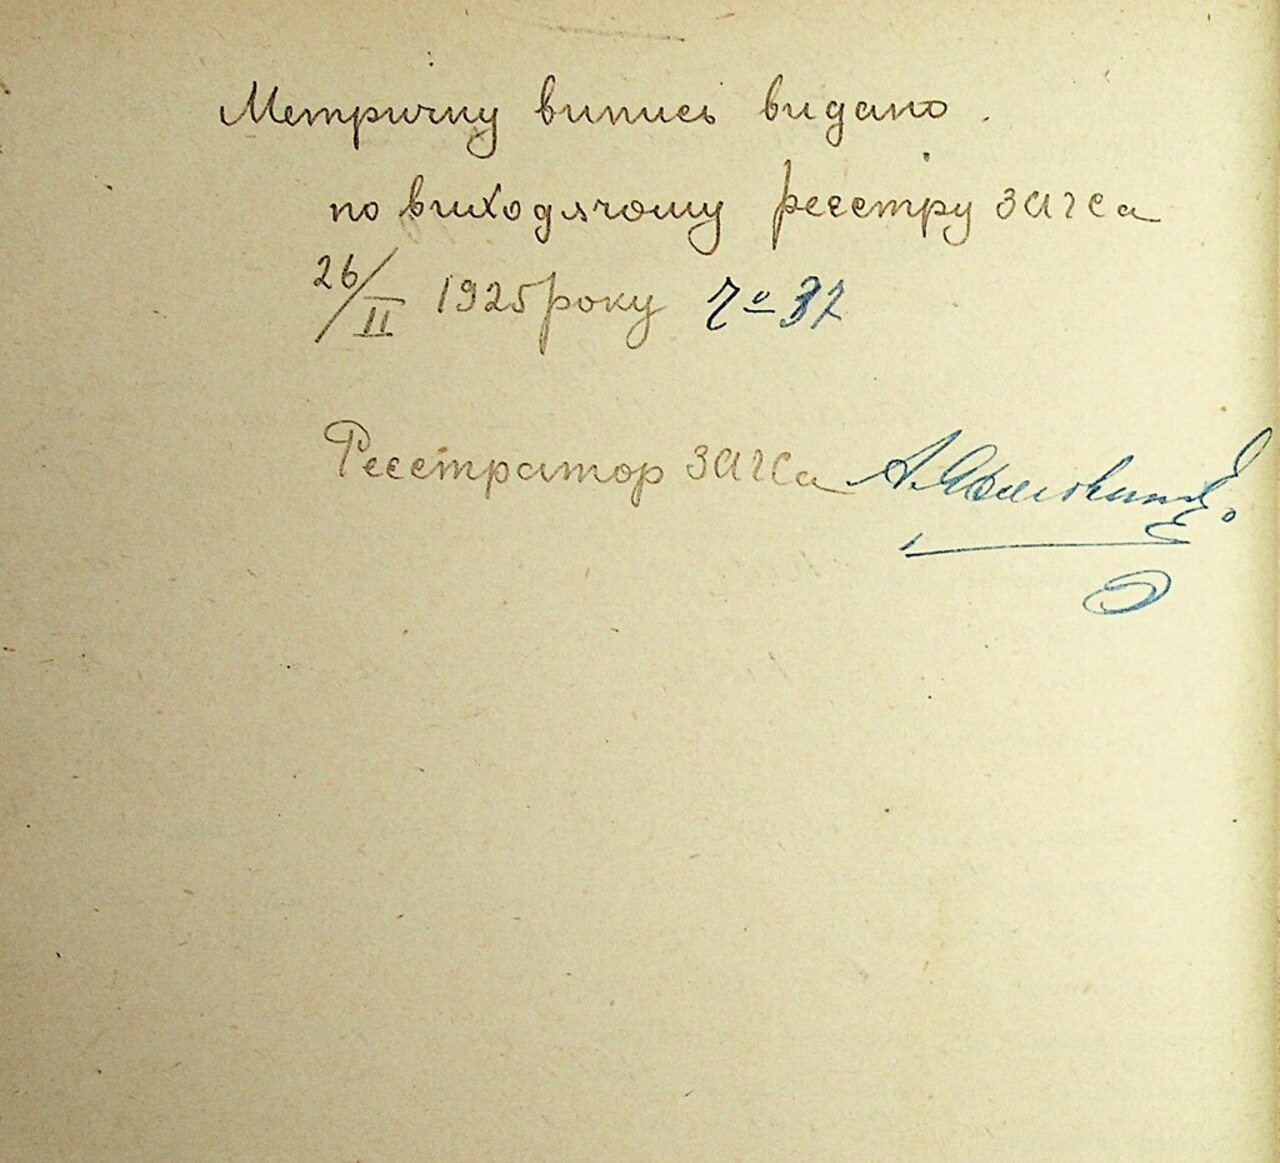 Метричну випись видано.
по виходячому реєстру ЗАГСа
26/II 1925 року Ч° 37
Реєстратор ЗАГСа А.